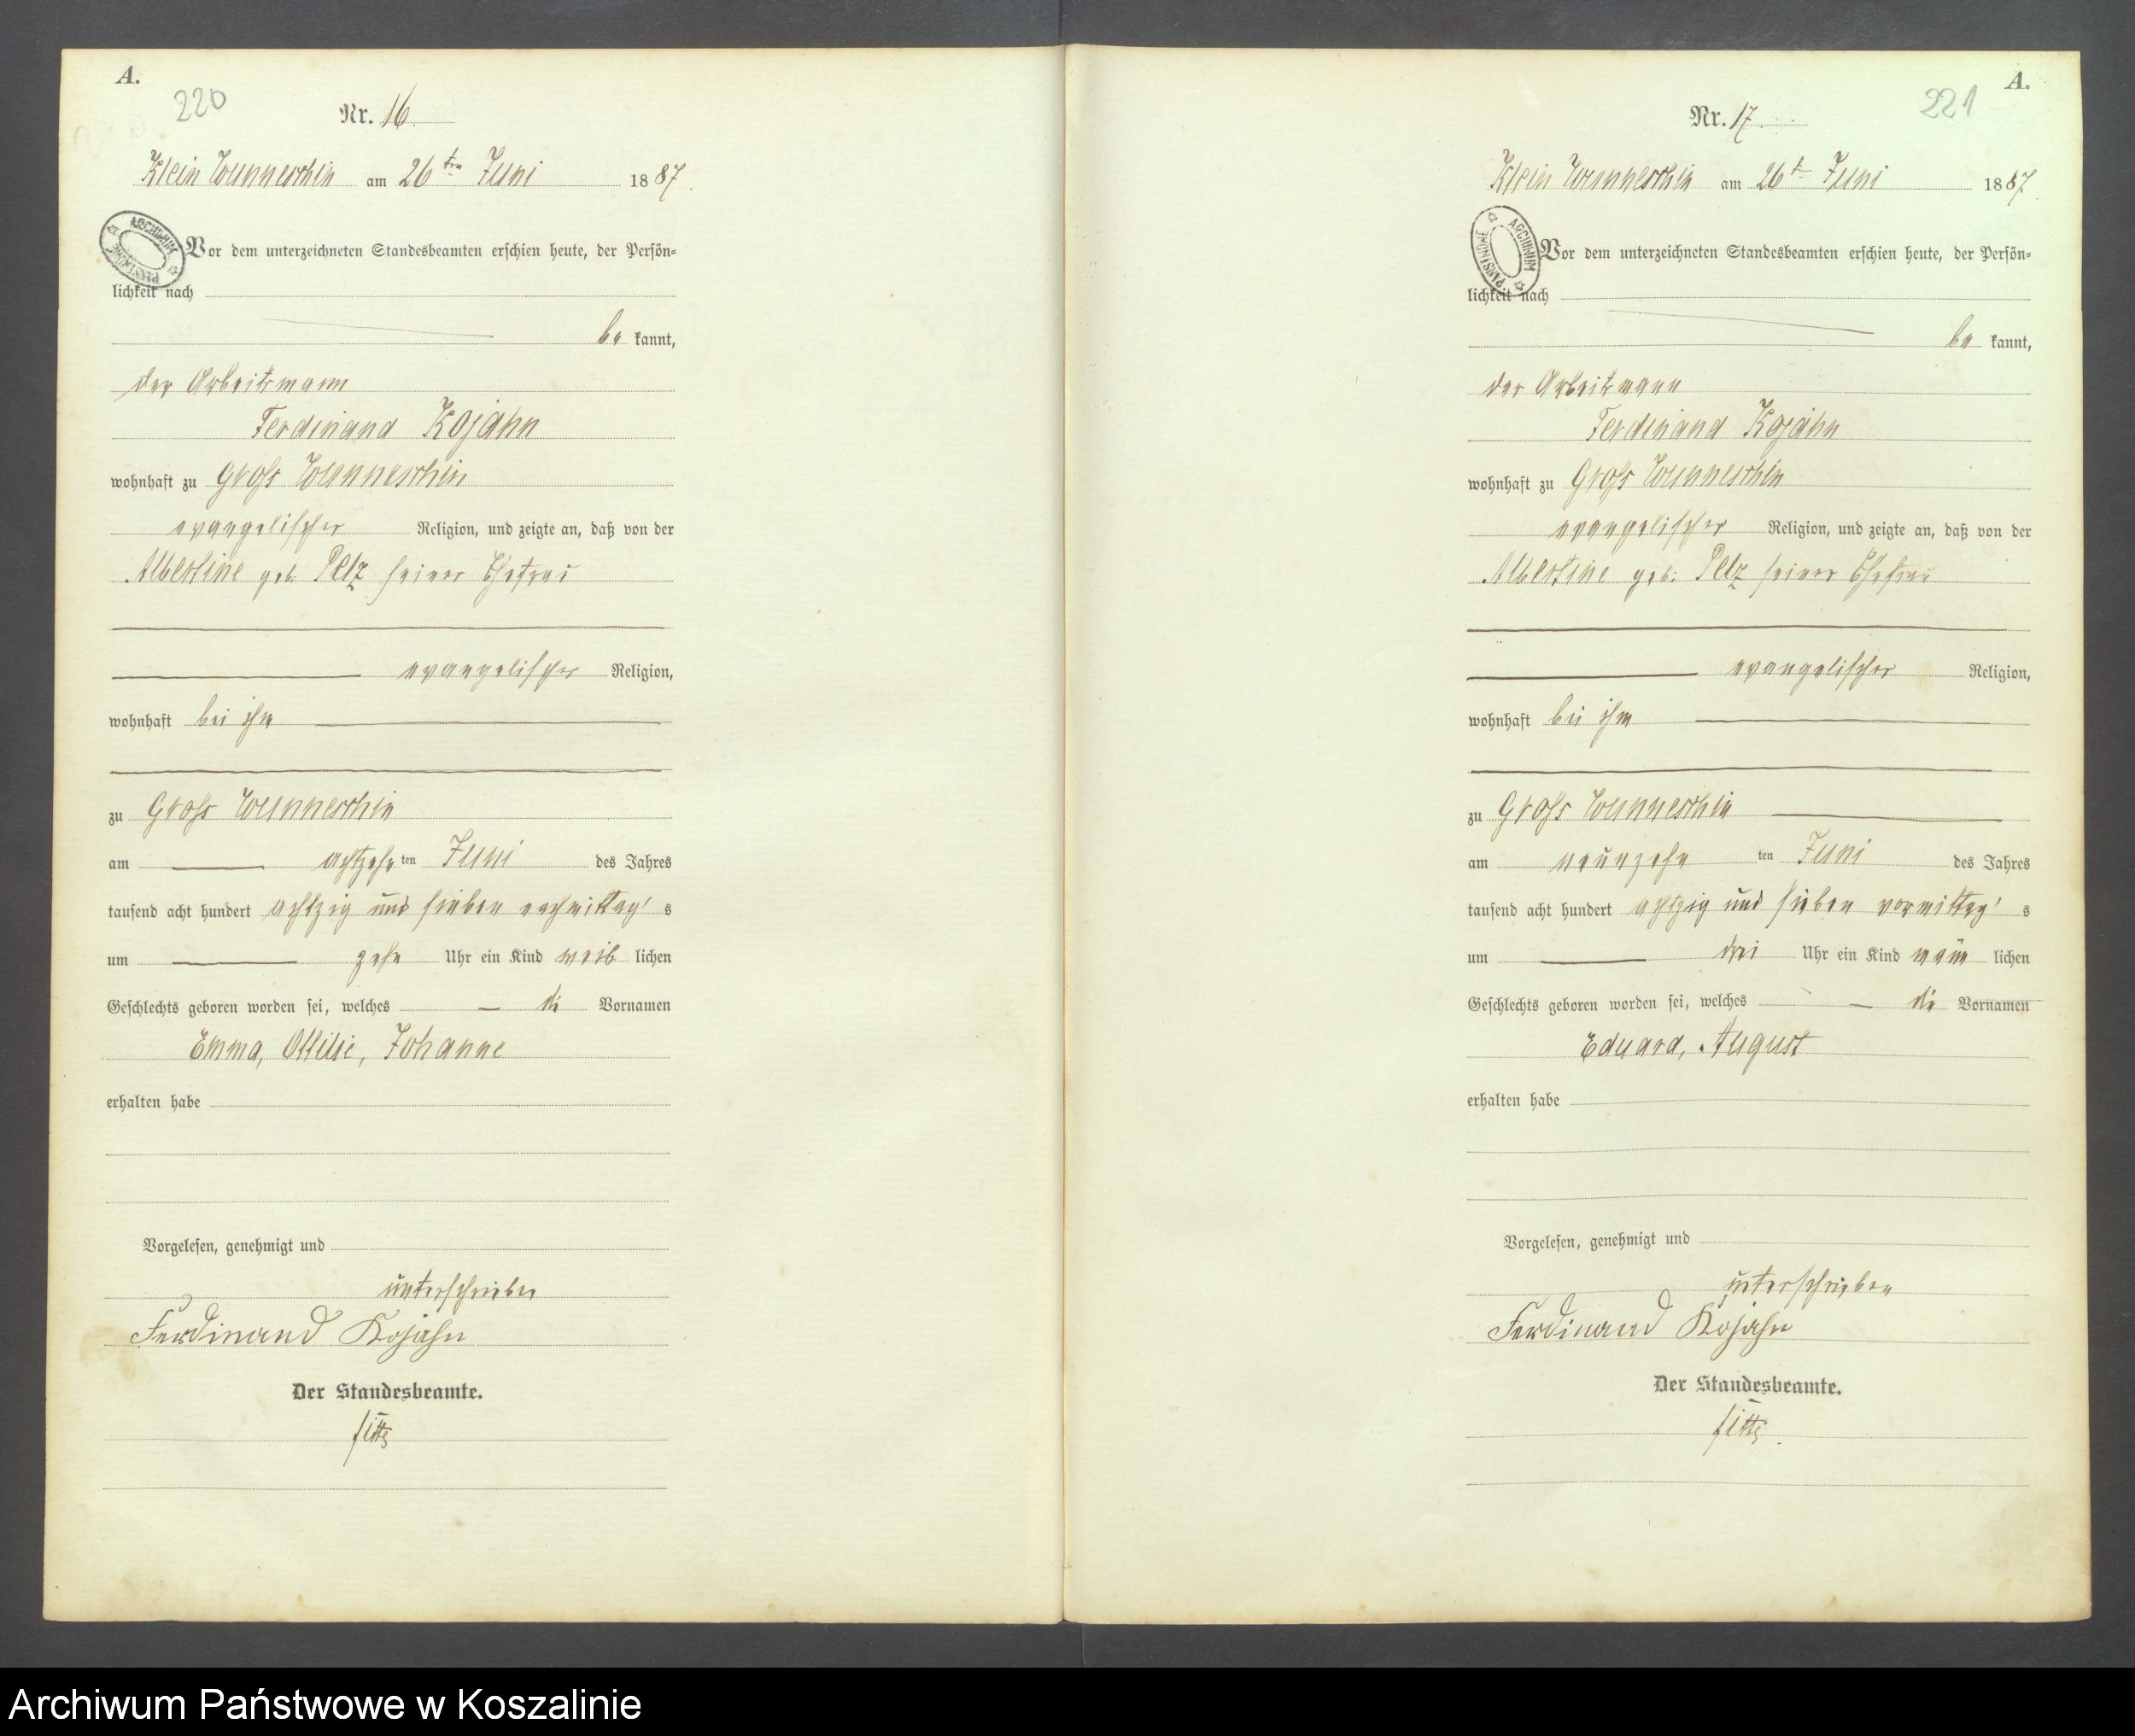 A.
220
Nr. 16.
Klein Wunneschin am 26ten Juni 1887.
ARCHIWUM PAŃSTWOWE
Vor dem unterzeichneten Standesbeamten erschien heute, der Persön-
lichkeit nach
be kannt,
der Arbeitsmann
Ferdinand Kojahn
wohnhaft zu Groß Wunneschin
evangelischer Religion, und zeigte an, daß von der
Albertine geb. Pelz seiner Ehefrau
evangelischer Religion,
wohnhaft bei ihm
zu Groß Wunneschin
am achtzehn ten Juni des Jahres
tausend acht hundert achtzig und sieben nachmittag's
um zehn Uhr ein Kind weib lichen
Geschlechts geboren worden sei, welches die Vornamen
Emma, Ottilie, Johanne
erhalten habe
Vorgelesen, genehmigt und
unterschrieben
Ferdinand Kojahn
Der Standesbeamte.
A.
221
Nr. 17.
Klein Wunneschin am 26t Juni 1887.
ARCHIWUM PAŃSTWOWE
Vor dem unterzeichneten Standesbeamten erschien heute, der Persön-
lichkeit nach
be kannt,
der Arbeitsmann
Ferdinand Kojahn
wohnhaft zu Groß Wunneschin
evangelischer Religion, und zeigte an, daß von der
Albertine geb. Pelz seiner Ehefrau
evangelischer Religion,
wohnhaft bei ihm
zu Groß Wunneschin
am neunzehn ten Juni des Jahres
tausend acht hundert achtzig und sieben vormittag's
um drei Uhr ein Kind män lichen
Geschlechts geboren worden sei, welches die Vornamen
Eduard, August
erhalten habe
Vorgelesen, genehmigt und
unterschrieben
Ferdinand Kojahn
Der Standesbeamte.
Archiwum Państwowe w Koszalinie